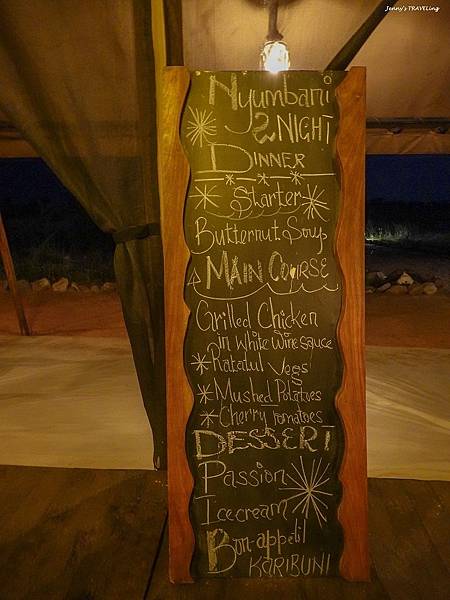 Jenny's TRAVELing
Nyumbani
2 NIGHT
DINNER
Starter
Butternut Soup
MAIN COURSE
Grilled Chicken
in white wine sauce
Ratatul Vegs
Mushed Potatoes
Cherry tomatoes
DESSERT
Passion
Icecream
Bon-appetil
KARIBUNI